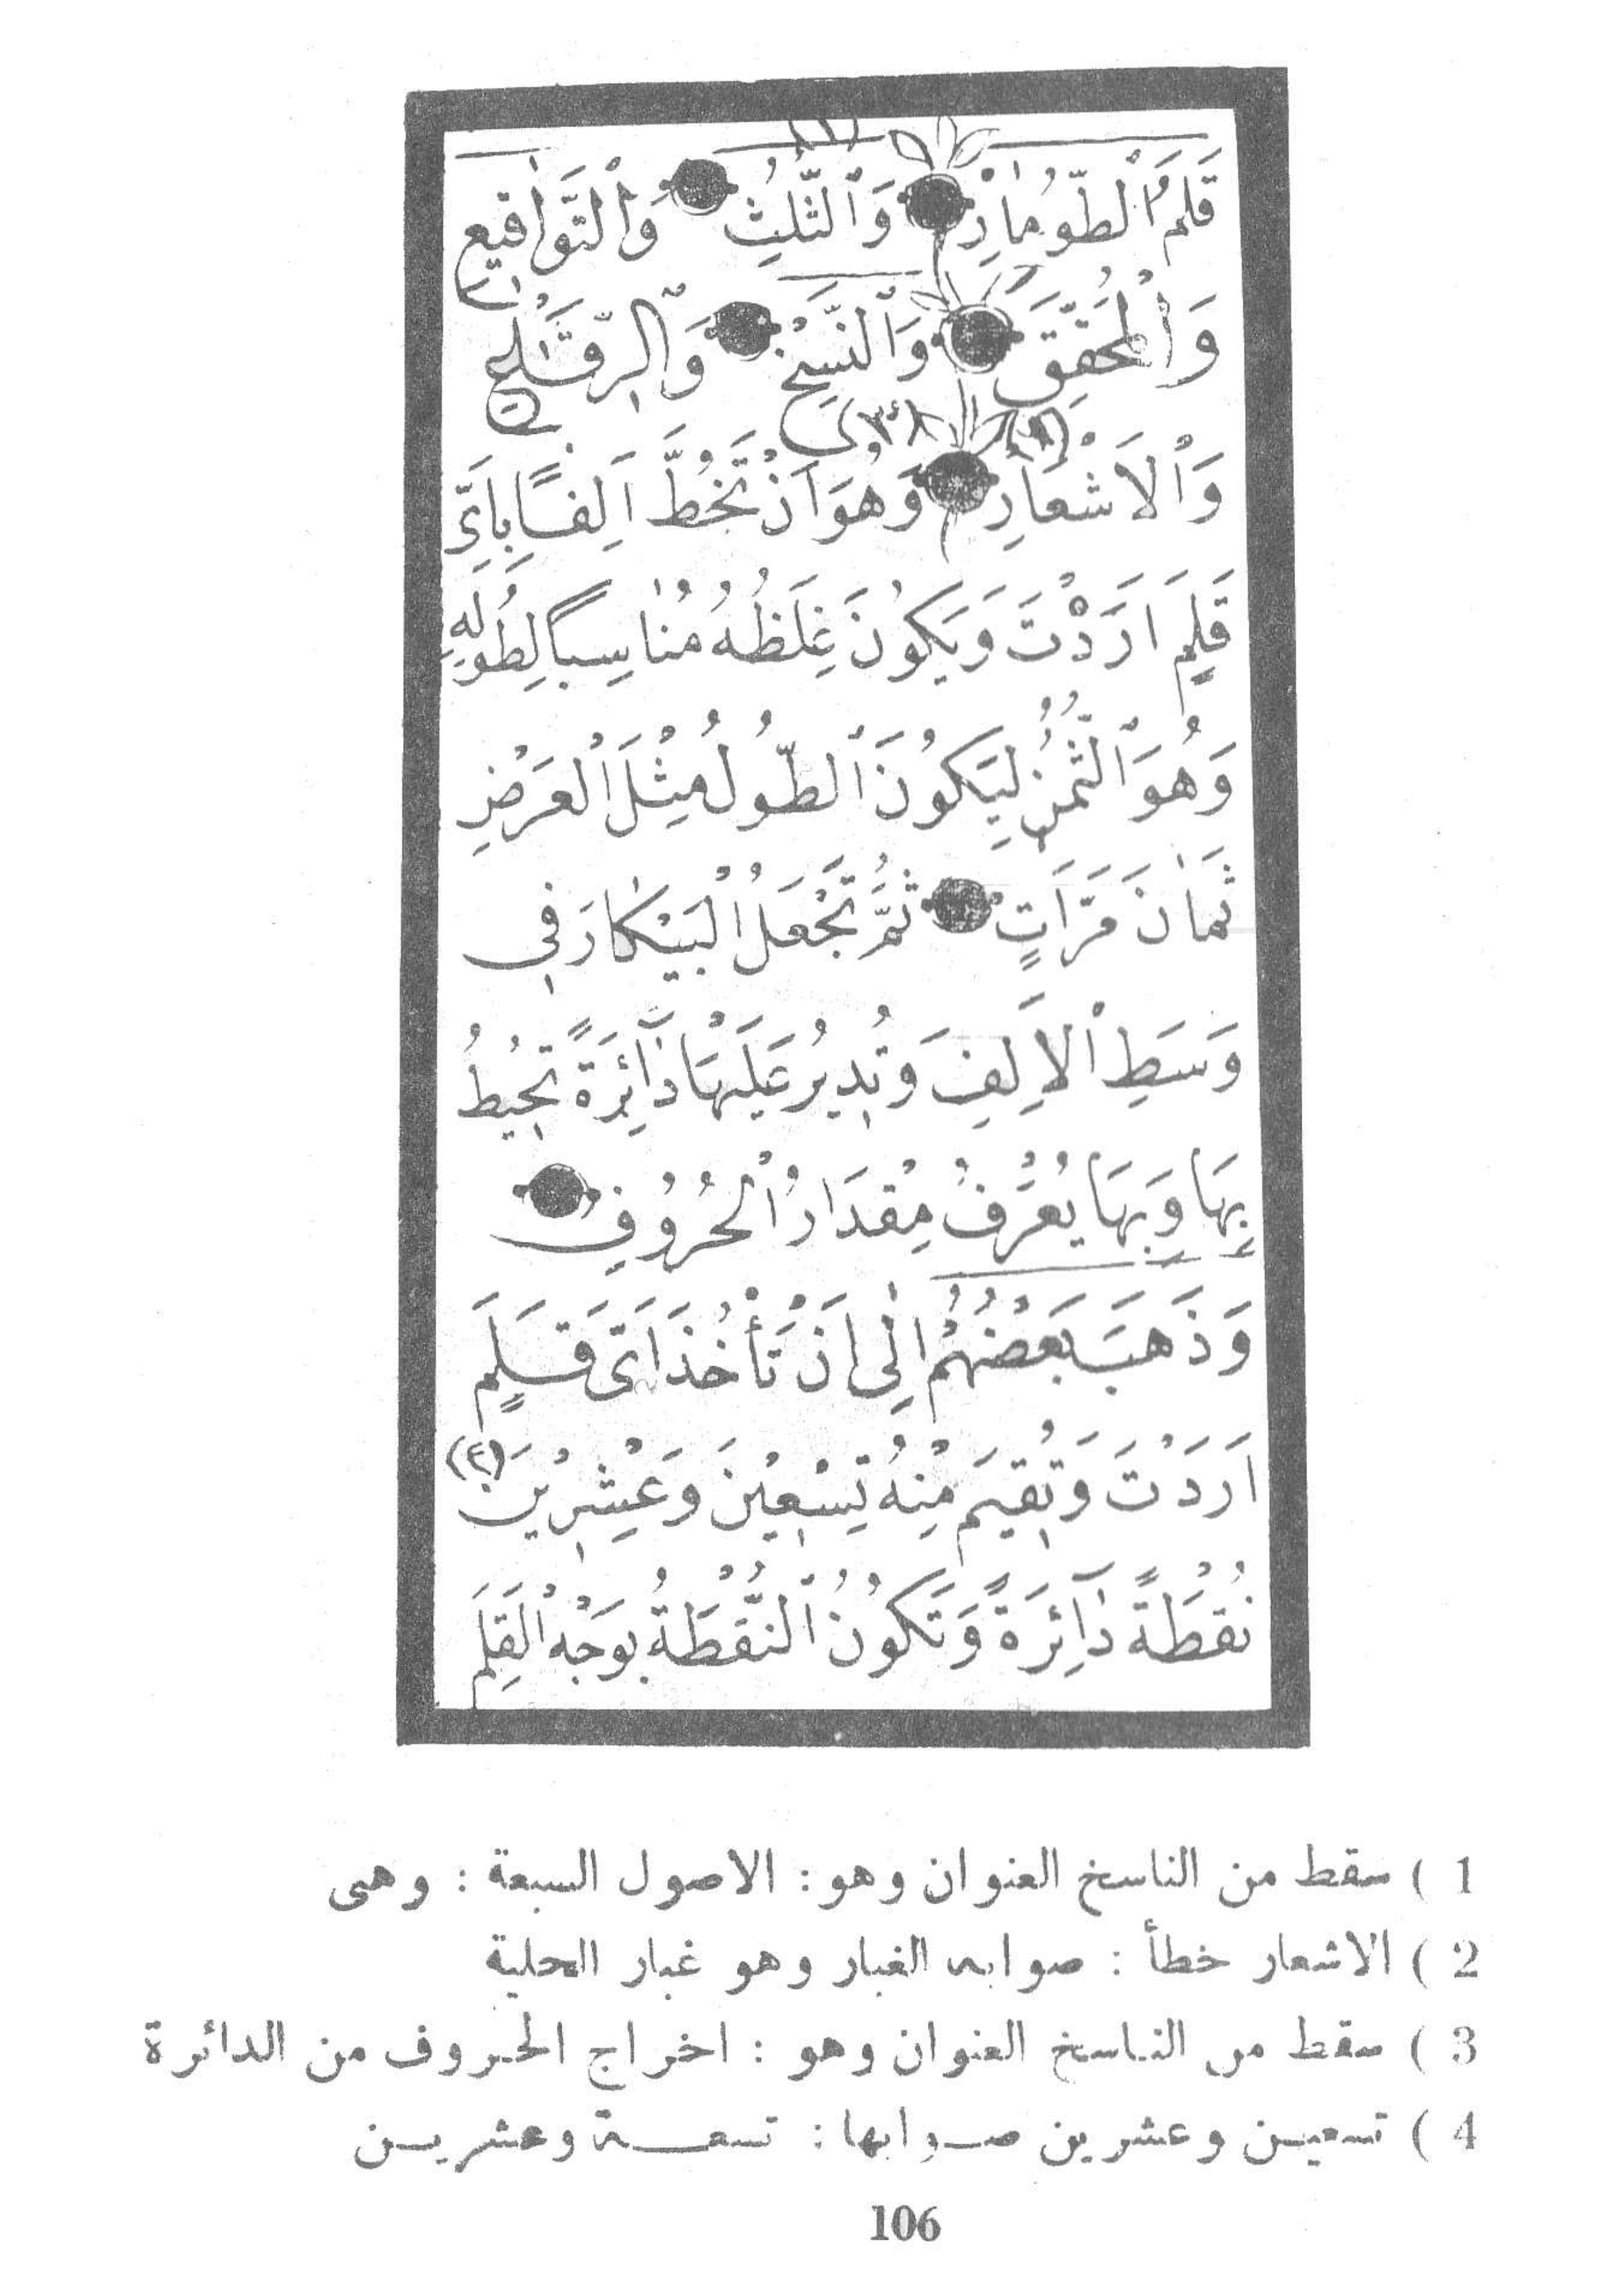 (١)
قَلَمُ ٱلطُّومَارِ وَٱلثُّلُثِ وَٱلتَّوَاقِيعِ
وَٱلْمُحَقَّقِ وَٱلنَّسْخِ وَٱلرِّقَاعِ
وَٱلْاَشْعَارِ وَهُوَ اَنْ تَخُطَّ اَلِفًا بِاَىِّ
قَلَمٍ اَرَدْتَ وَيَكُونَ غِلَظُهُ مُنَاسِبًا لِطُولِهِ
وَهُوَ ٱلثُّمُنُ لِيَكُونَ ٱلطُّولُ مِثْلَ ٱلْعَرْضِ
ثَمَانَ مَرَّاتٍ ثُمَّ تَجْعَلُ ٱلْبَيْكَارَ فِى
وَسَطِ ٱلْاَلِفِ وَتُدِيرُ عَلَيْهَا دَآئِرَةً تُحِيطُ
بِهَا وَبِهَا يُعْرَفُ مِقْدَارُ ٱلْحُرُوفِ
وَذَهَبَ بَعْضُهُمْ اِلٰى اَنْ تَأْخُذَ اَىَّ قَلَمٍ
اَرَدْتَ وَتُقِيمَ مِنْهُ تِسْعِيْنَ وَعِشْرِيْنَ (٤)
نُقْطَةً دَآئِرَةً وَتَكُونُ ٱلنُّقْطَةُ بِوَجْهِ ٱلْقَلَمِ
1 ) سقط من الناسخ العنوان وهو : الاصول السبعة : وهى
2 ) الاشعار خطأ : صوابه الغبار وهو غبار الحلية
3 ) سقط من الناسخ العنوان وهو : اخراج الحروف من الدائرة
4 ) تسعين وعشرين صوابها : تسعة وعشرين
106